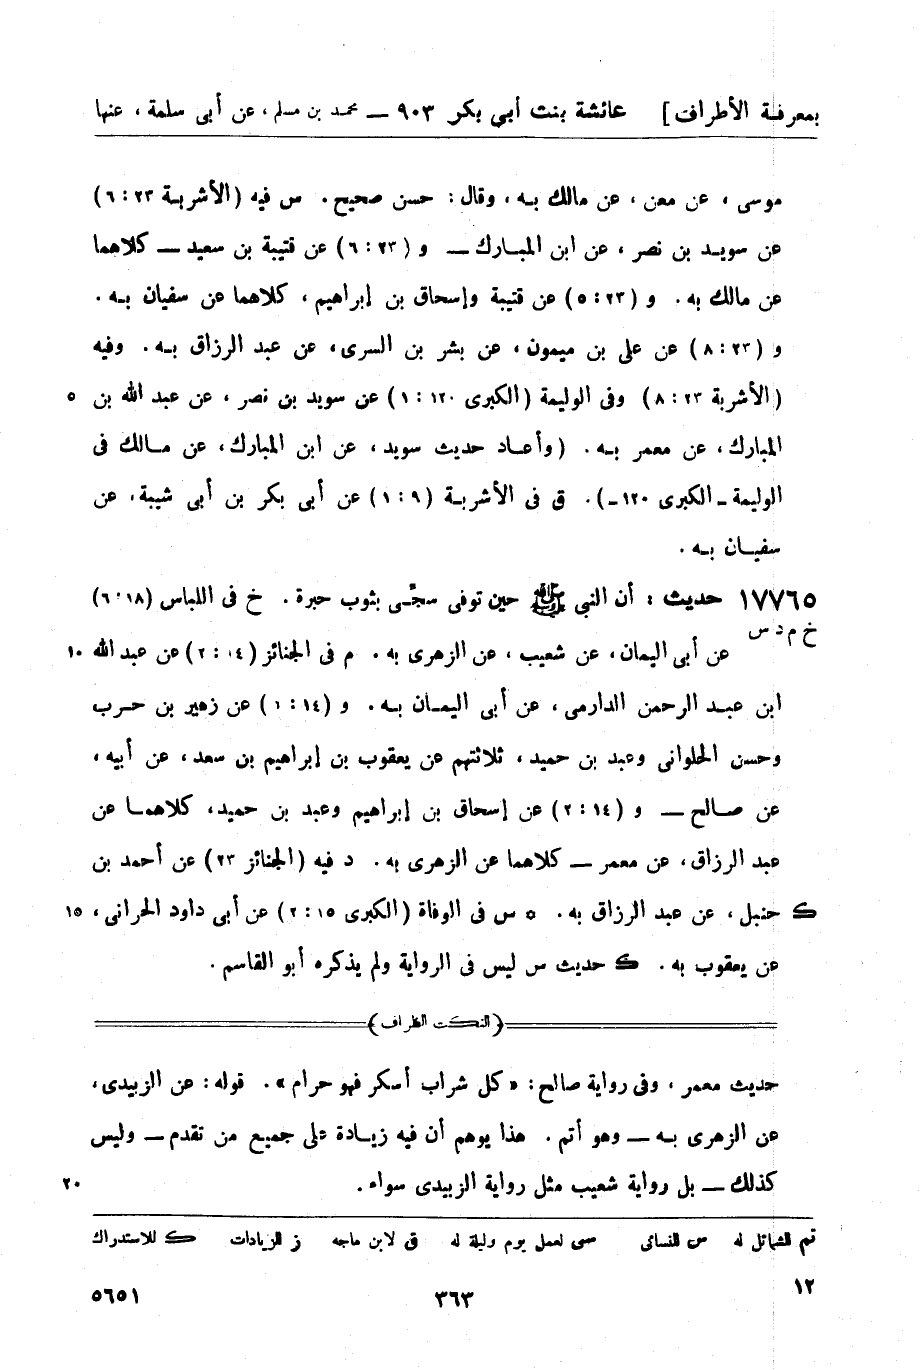 بمعرفة الأطراف] عائشة بنت أبي بكر ٩٠٣ — محمد بن مسلم، عن أبى سلمة، عنها
موسى، عن معن، عن مالك بـه، وقال: حسن صحيح. س فيه (الأشربـة ٢٣: ٦)
عن سويـد بن نصر، عن ابن المبـارك — و (٢٣: ٦) عن قتيبة بن سعيد — كلاهما
عن مالك به. و (٢٣: ٥) عن قتيبة وإسحاق بن إبراهيم، كلاهما عن سفيان بـه.
و (٢٣: ٨) عن على بن ميمون، عن بشر بن السرى، عن عبد الرزاق بـه. وفيه
(الأشربة ٢٣: ٨) وفى الوليمة (الكبرى ١٢٠: ١) عن سويد بن نصر، عن عبد الله بن ٥
المبارك، عن معمر بـه. (وأعـاد حديث سويد، عن ابن المبارك، عن مـالك فى
الوليمة ـ الكبرى ١٢٠ ـ). ق فى الأشربـة (٩: ١) عن أبى بكر بن أبى شيبة، عن
سفيـان بـه.
١٧٧٦٥ حديث: أن النبي ﷺ حين توفى سجّـى بثوب حبرة. خ فى اللباس (١٨: ٦)
خ م د س عن أبى اليمان، عن شعيب، عن الزهرى به. م فى الجنائز (١٤: ٢) عن عبد الله ١٠
ابن عبـد الرحمن الدارمى، عن أبى اليمـان بـه. و (١٤: ١) عن زهير بن حـرب
وحسن الحلوانى وعبد بن حميد، ثلاثتهم عن يعقوب بن إبراهيم بن سعد، عن أبيه،
عن صـالح — و (١٤: ٢) عن إسحاق بن إبراهيم وعبد بن حميد، كلاهمـا عن
عبد الرزاق، عن معمر — كلاهما عن الزهرى به. د فيه (الجنائز ٢٣) عن أحمد بن
ك حنبل، عن عبد الرزاق به. * س فى الوفاة (الكبرى ١٥: ٢) عن أبى داود الحرانى، ١٥
عن يعقوب به. ك حديث س ليس فى الرواية ولم يذكره أبو القاسم.
(النكت الظراف)
حديث معمر، وفى رواية صالح: «كل شراب أسكر فهو حرام». قوله: عن الزبيدى،
عن الزهرى بـه — وهو أتم. هذا يوهم أن فيه زيـادة على جميع من تقدم — وليس
كذلك — بل رواية شعيب مثل رواية الزبيدى سواء. ٢٠
تم الشمائل له س للنسائى سى لعمل يوم وليلة له ق لابن ماجه ز للزيادات ك للاستدراك
١٢
٣٦٣
٥٦٥١